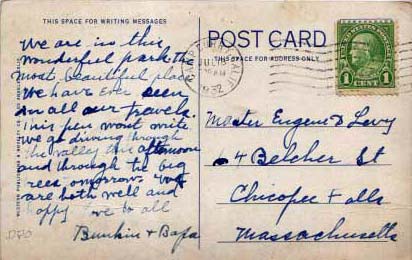 THIS SPACE FOR WRITING MESSAGES
POST CARD
THIS SPACE FOR ADDRESS ONLY
1932
1 CENT 1
We are in this
wonderful park the
most beautiful place
we have ever seen
in all our travels.
This pen wont write
we go driving through
the valley this afternoon
and through the big
rees omorrow We
are both well and
appy love to all
Bunkin + Bapa
Master Eugene D Levy
4 Belcher St
Chicopee Falls
Massachusetts